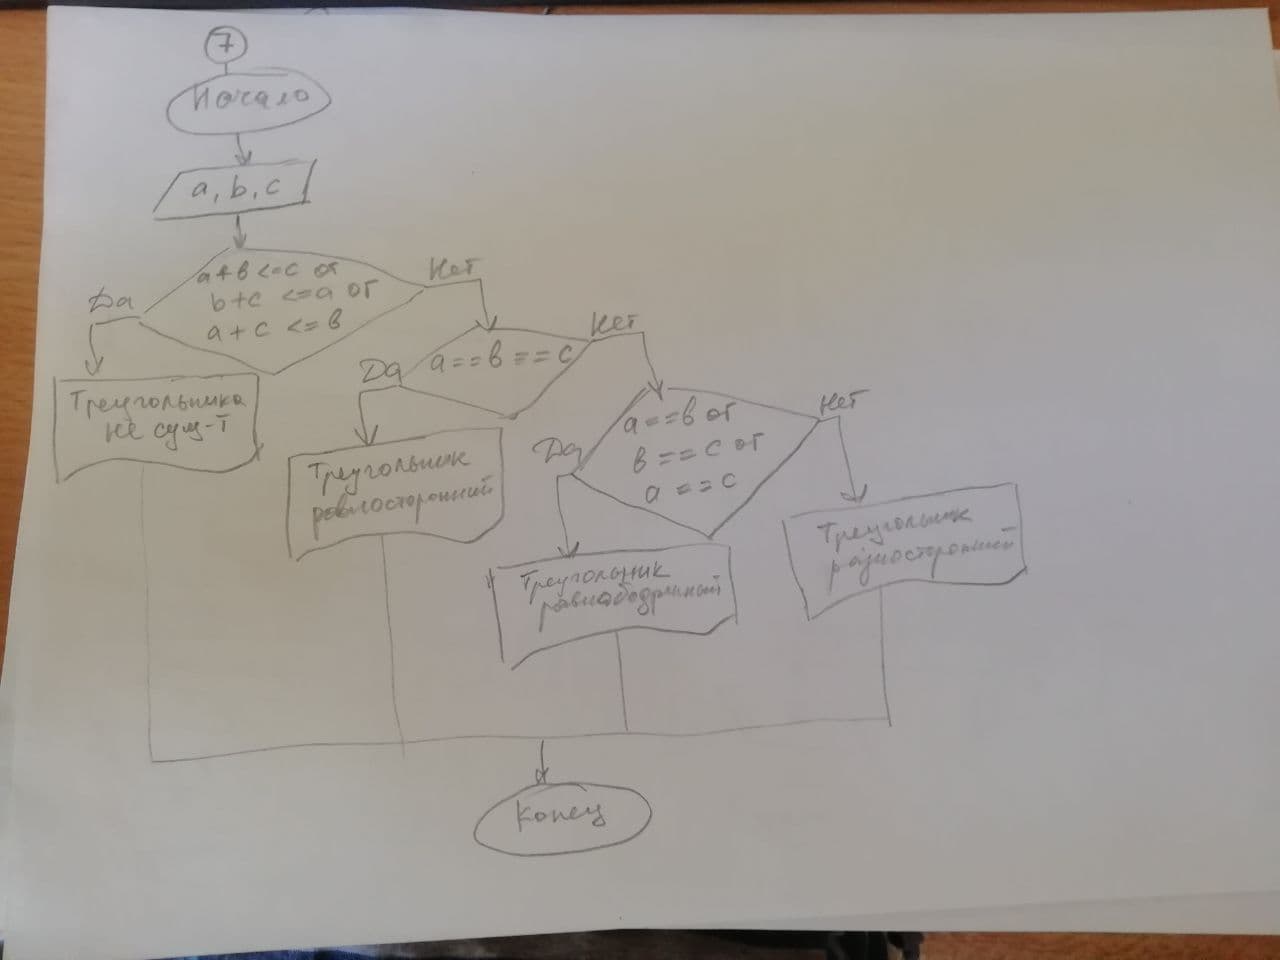 7
Начало
a, b, c
a+b <= c or
b+c <= a or
a + c <= b
Да
Нет
Треугольника
не сущ-т
a == b == c
Да
Нет
Треугольник
равносторонний
a == b or
b == c or
a == c
Да
Нет
Треугольник
равнобедренный
Треугольник
разносторонний
Конец